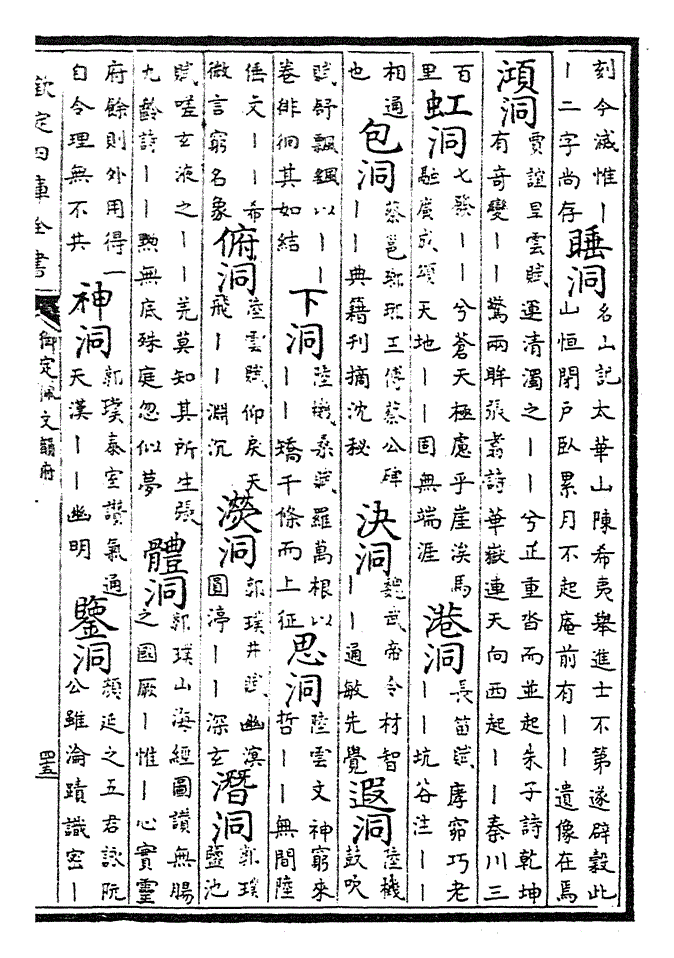 刻今滅惟丨丨二字尚存 睡洞 名山記太華山陳希夷舉進士不第遂辟穀此山恒閉戶臥累月不起庵前有丨丨遺像在焉
澒洞 賈誼旱雲賦運清濁之丨丨兮正重沓而並起朱子詩乾坤有奇變丨丨驚兩眸張翥詩華嶽連天向西起丨丨秦川三
百里 虹洞 七發丨丨兮蒼天極慮乎崖涘馬融廣成頌天地丨丨固無端涯 港洞 長笛賦庨窌巧老丨丨坑谷注丨丨
相通也 包洞 蔡邕瑯琊王傅蔡公碑丨丨典籍刊摘沈秘 決洞 魏武帝令材智丨丨通敏先覺 遐洞 陸機鼓吹
賦舒飄颻以丨丨卷徘徊其如結 下洞 陸機桑賦羅萬根以丨丨矯千條而上征 思洞 陸雲文神窮來哲丨丨無間陸
儁文丨丨希微言窮名象 俯洞 陸雲賦仰戾天飛丨丨淵沉 濙洞 郭璞井賦幽溟圓渟丨丨深玄 潛洞 郭璞鹽池
賦嗟玄液之丨丨羌莫知其所生張九齡詩丨丨勲無底殊庭忽似夢 體洞 郭璞山海經圖讚無腸之國厥丨惟丨心實靈
府餘則外用得一自令理無不共 神洞 郭璞泰室讚氣通天漢丨丨幽明 鑒洞 顏延之五君詠阮公雖淪蹟識密丨
欽定四庫全書 御定佩文韻府 四五